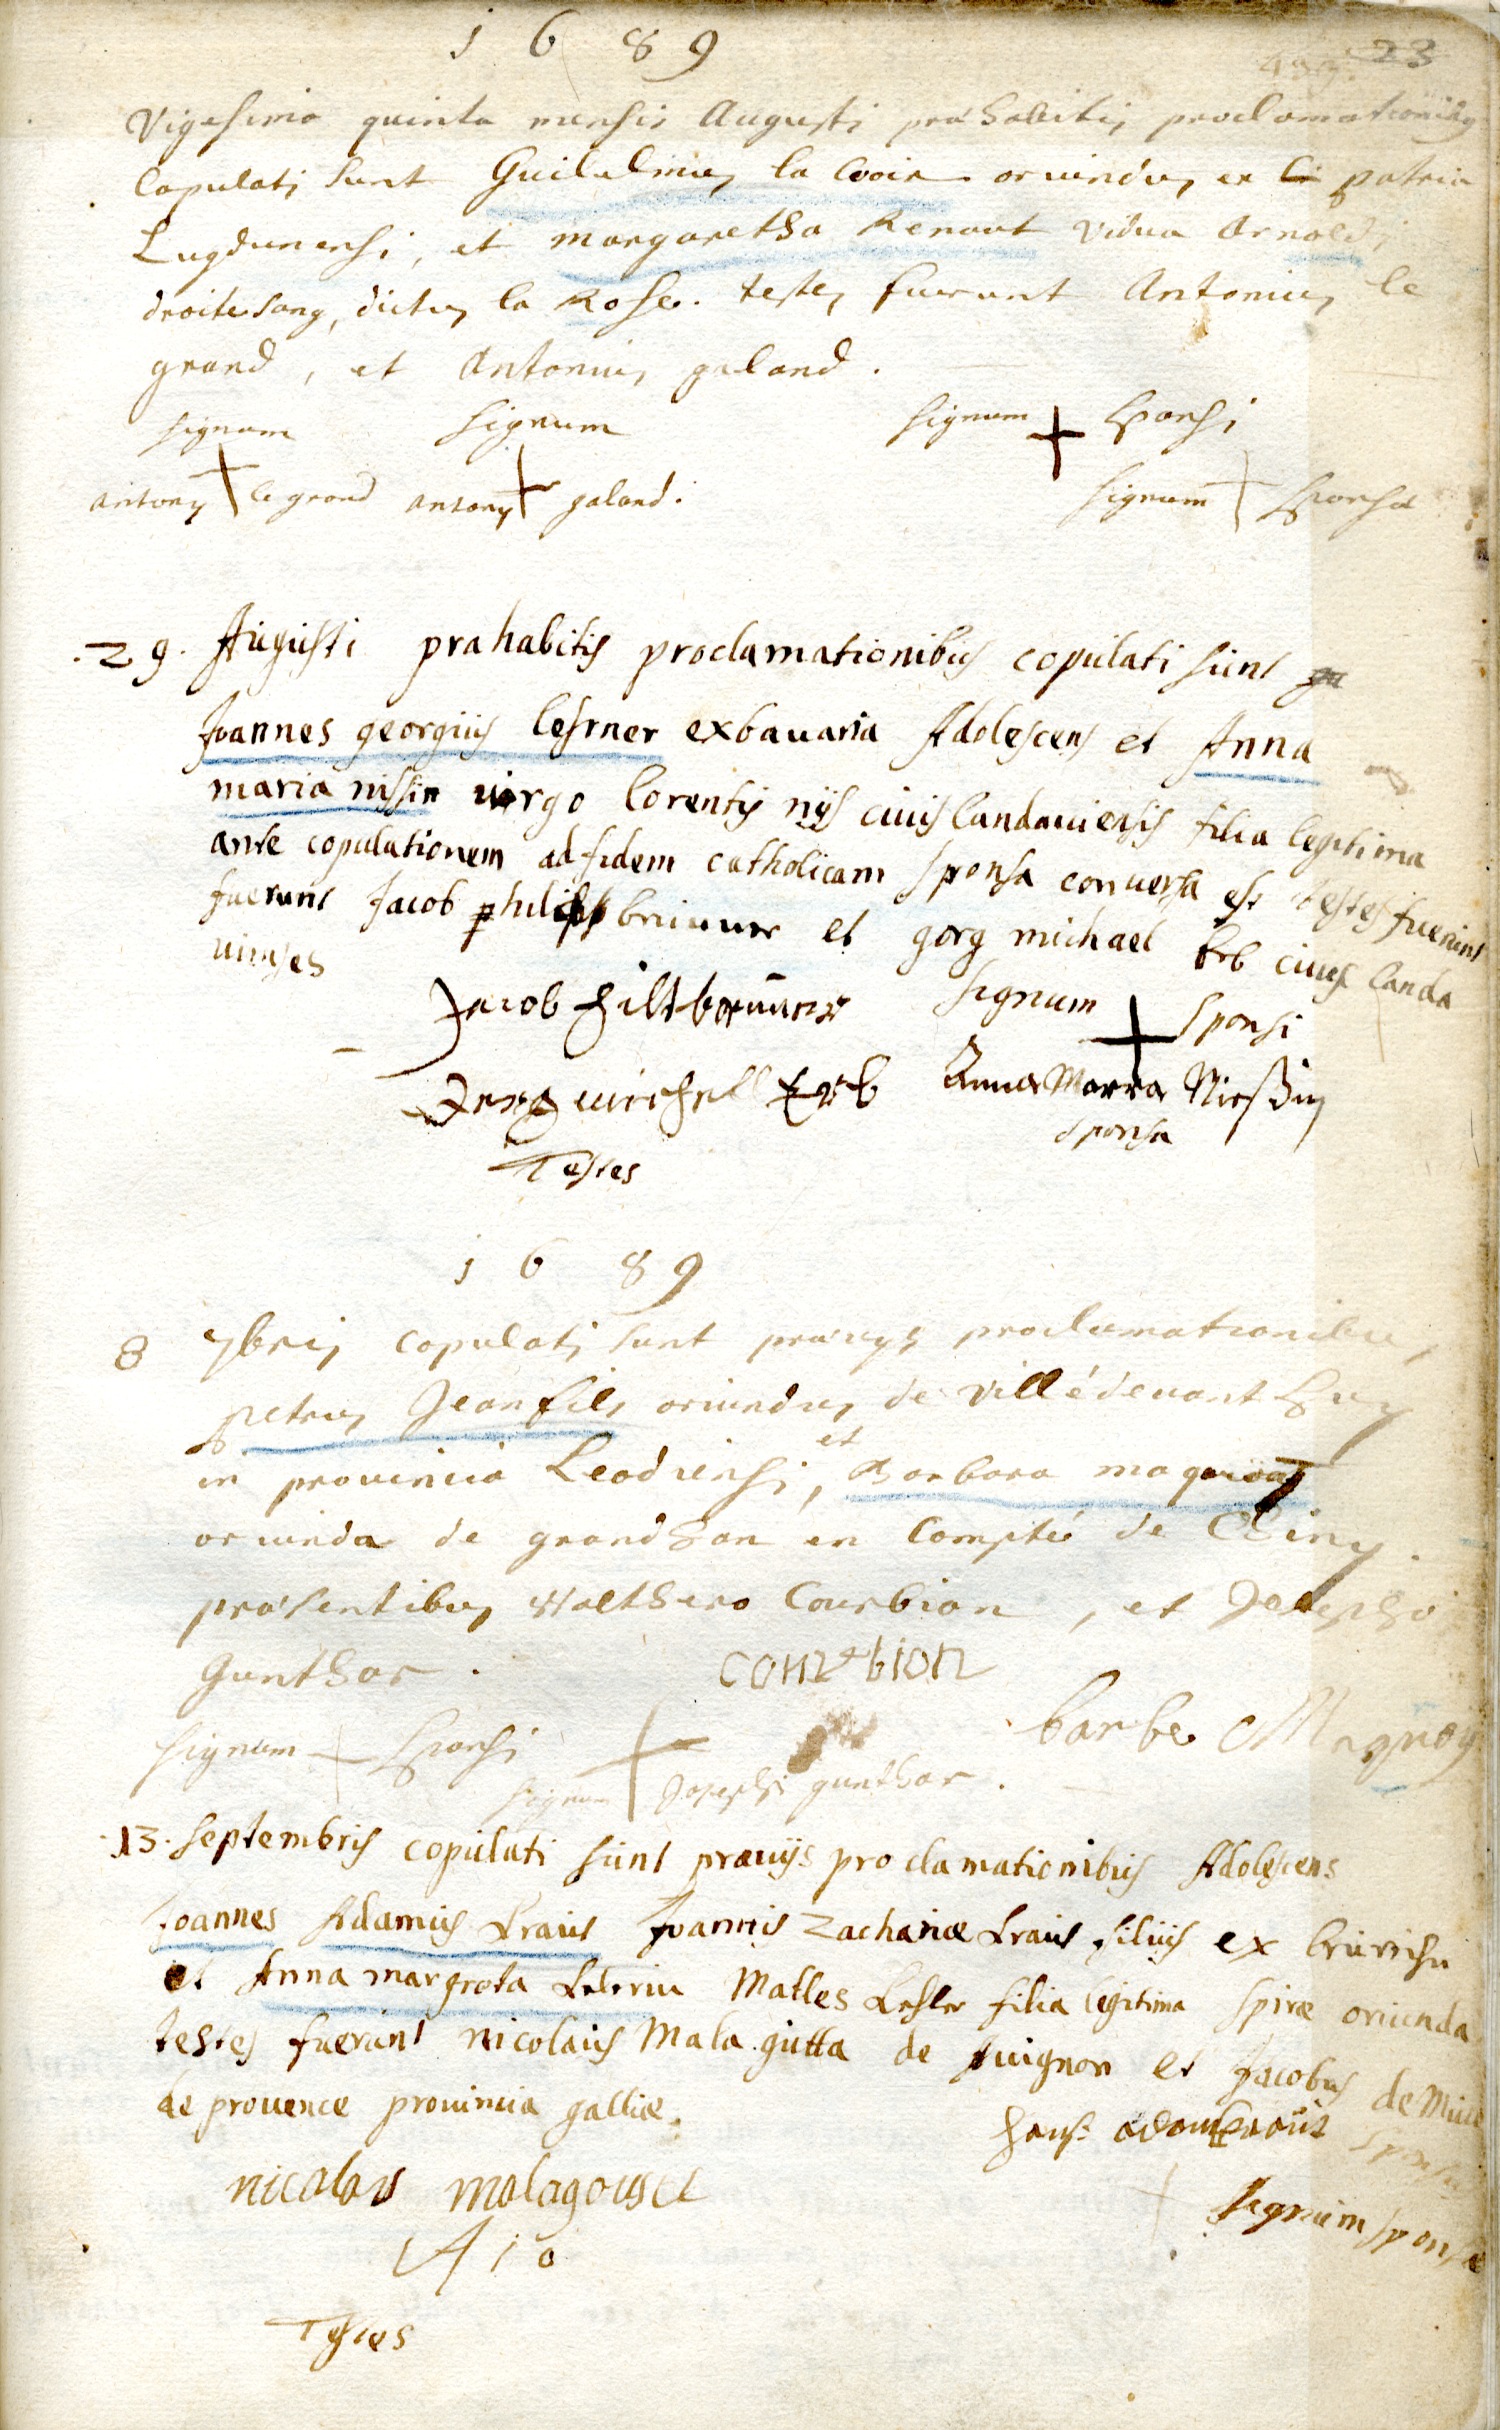 1689
23
Vigesimo quinta mensis Augusti præhabitis proclamationibus
Copulati sunt Guilielmus la Croix oriundus ex patria
Lugdunensi, et margaretha Renaut vidua Arnoldi
droitesang, dictus la Rose. testes fuerunt Antonius le
grand, et Antonius galand.
signum signum signum + sponsi
antony + le grand antony + galand. signum + sponsæ
.29. Augusti præhabitis proclamationibus copulati sunt
Joannes georgius lehrner ex bavaria Adolescens et Anna
maria nissin virgo Lorentij nijs civis landauiensis filia legitima
ante copulationem ad fidem catholicam sponsa conversa est testes fuerunt
fuerunt Jacob philipp et gorg michael Erb cives landa
vienses
Jacob hiltbrunner signum + sponsi
Jerg michell Erb Anna Maria Nießin
Testes sponsa
1689
8 7bris copulati sunt prævys proclamationibus
petrus Jeanfils oriundus de Villédevant
in provincia Leodiensi, et Barbara
oriunda de grandhan en Compté de Chiny.
præsentibus Walthero Courbion, et Josepho
Gunthar.
Courbion
signum + sponsi barbe Magnoy
signum + Josephi gunthar.
.13. septembris copulati sunt prævijs proclamationibus Adolescens
Joannes Adamus Kraus Joannis Zachariæ Kraus filius ex
et Anna margreta Matles filia legitima spiræ oriunda
testes fuerunt nicolaus Mala gutta de Auignon et Jacobus de
de provence provincia galliæ.
hans adam Kraus sponsus
nicolas malagouste + signum sponsæ
Testes